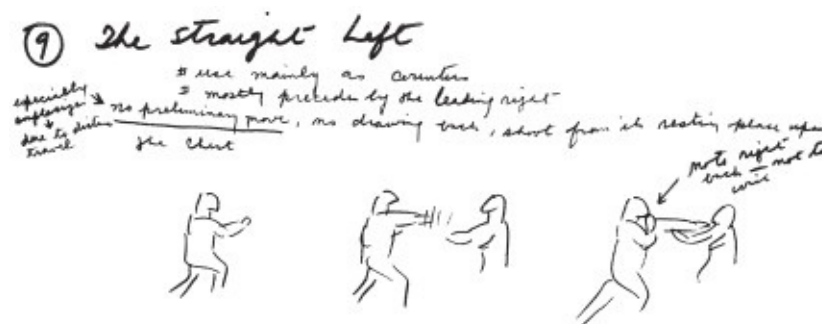 9 The Straight Left
# use mainly as counters
# mostly precedes by the leading right
especially emphasize due to distance travel
no preliminary move, no drawing back, shoot from its resting place upon
the chest
note right
back — not to